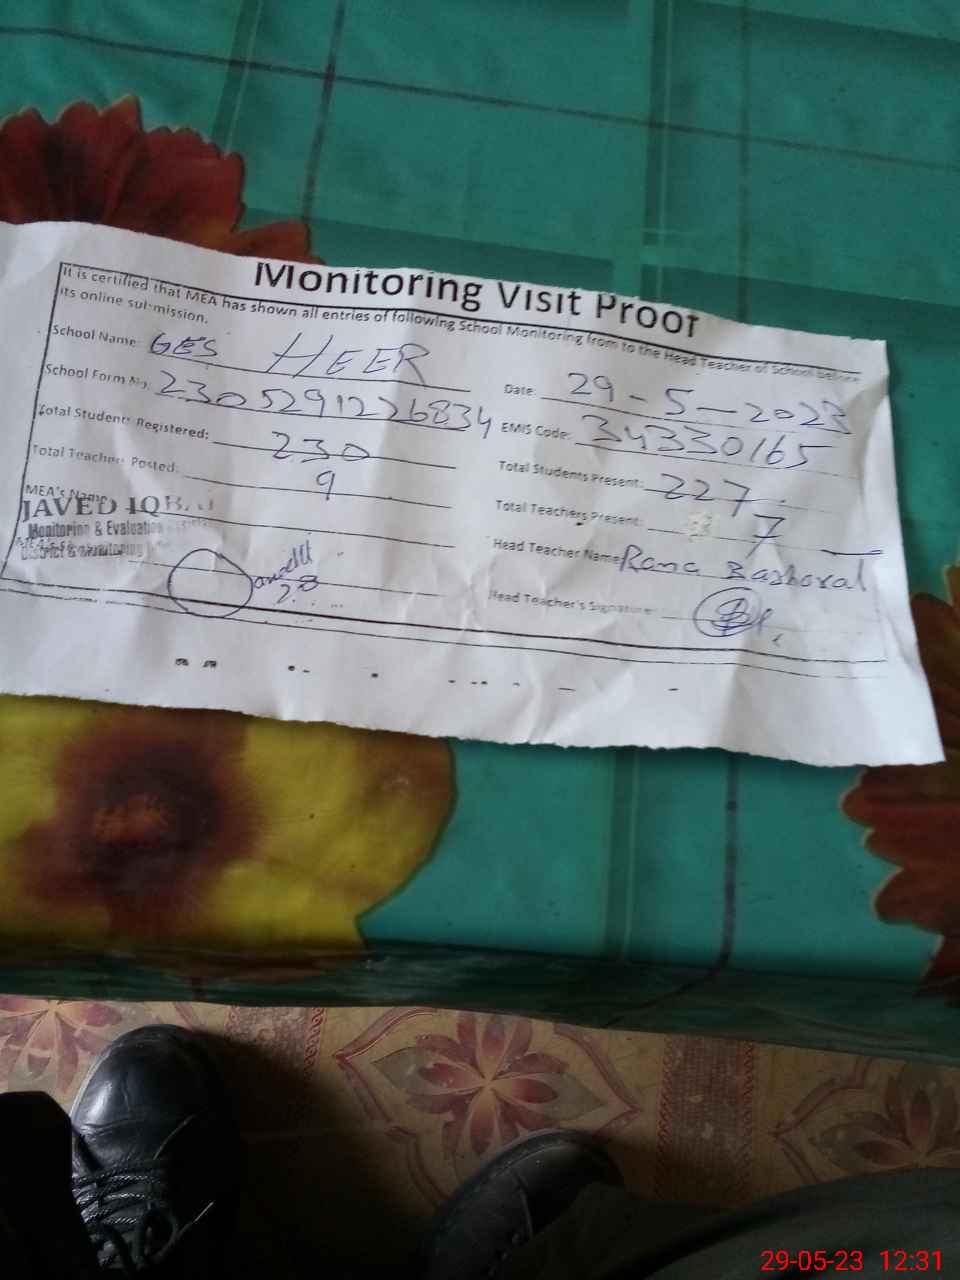 Monitoring Visit Proof
It is certified that MEA has shown all entries of following School Monitoring from to the Head Teacher of School before
its online submission.
School Name: GES HEER
Date 29-5-2023
School Form No. 2305291226834
EMIS Code: 34330165
Total Students Registered: 230
Total Students Present: 227
Total Teachers Posted: 9
Total Teachers Present: 7
MEA's Name
JAVED IQBAL
Monitoring & Evaluation
Head Teacher Name Rana Basharal
Head Teacher's Signature
29-05-23 12:31